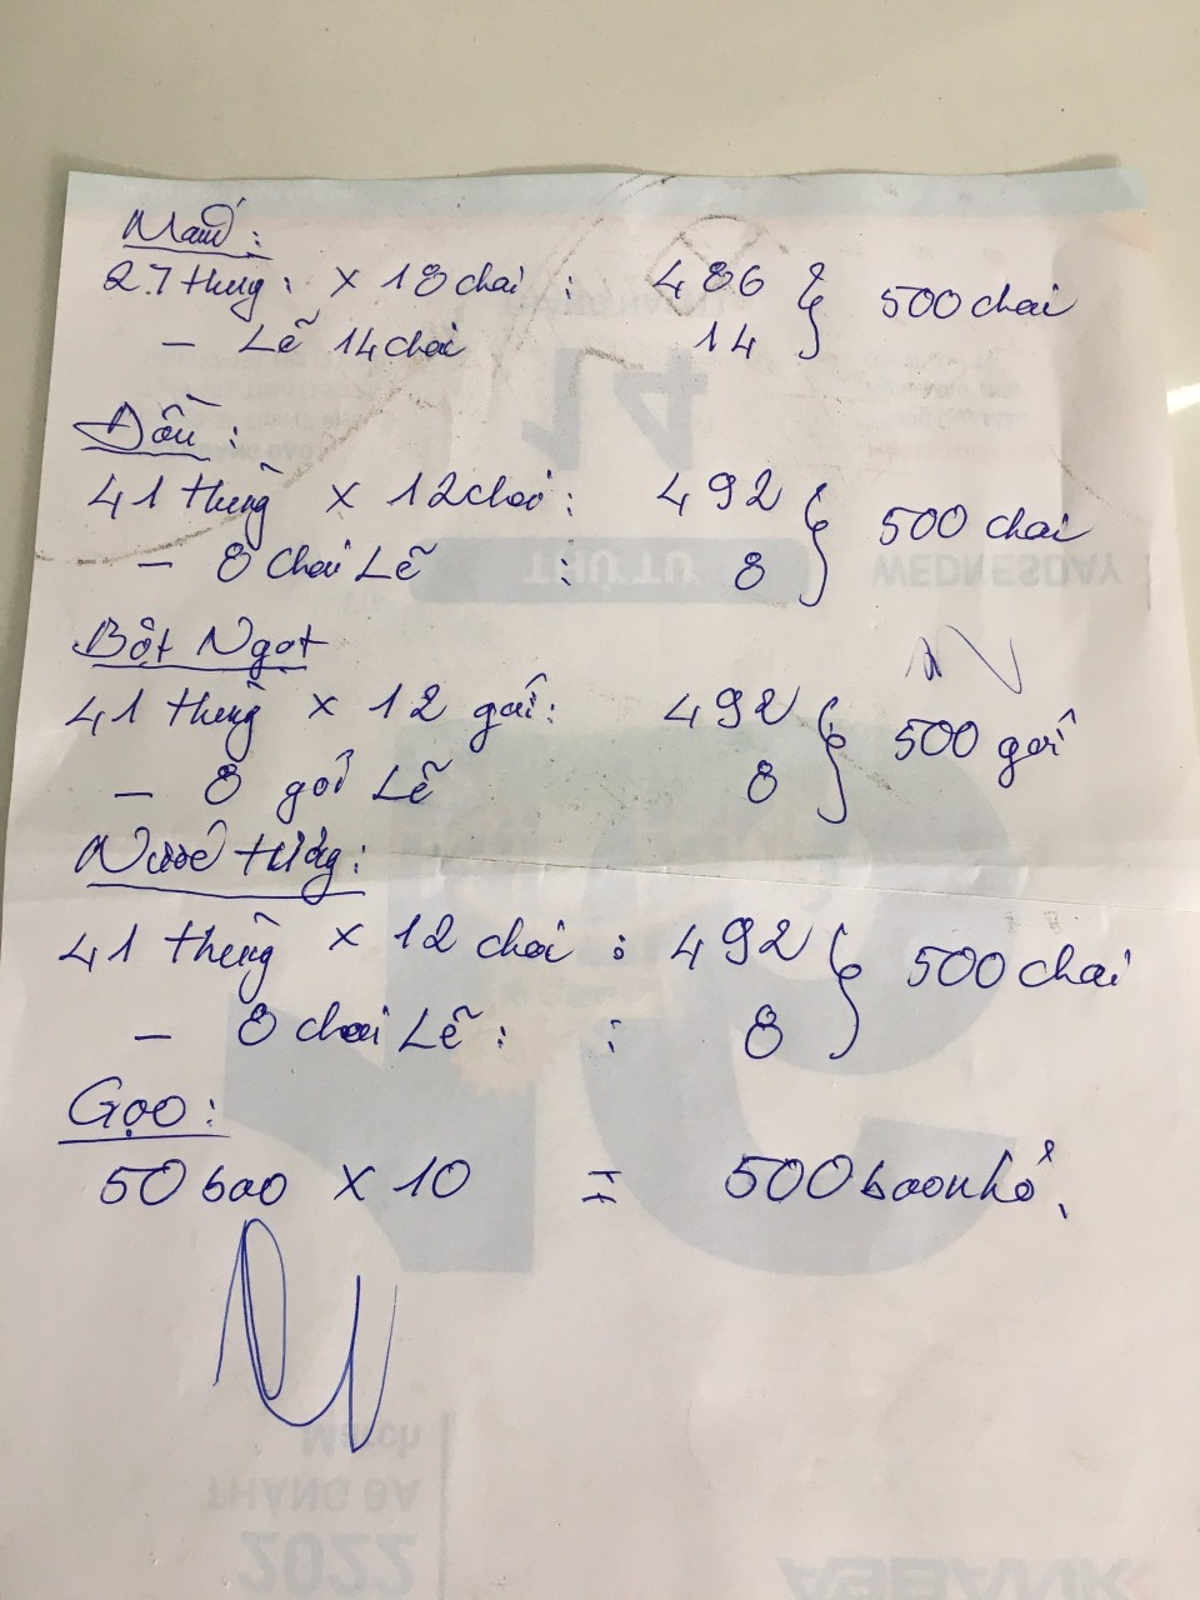 Mắm:
27 thùng: x 18 chai : 486 } 500 chai
- Lẽ 14 chai 14
Dầu:
41 thùng x 12 chai: 492 } 500 chai
- 8 chai Lẽ : 8
Bột Ngọt
41 thùng x 12 gói: 492 } 500 gói
- 8 gói Lẽ 8
Nước tương:
41 thùng x 12 chai : 492 } 500 chai
- 8 chai Lẽ : : 8
Gạo:
50 bao x 10 = 500 bao nhỏ.
14
THỨ TƯ
WEDNESDAY
March
THÁNG BA
2022
ABBANK